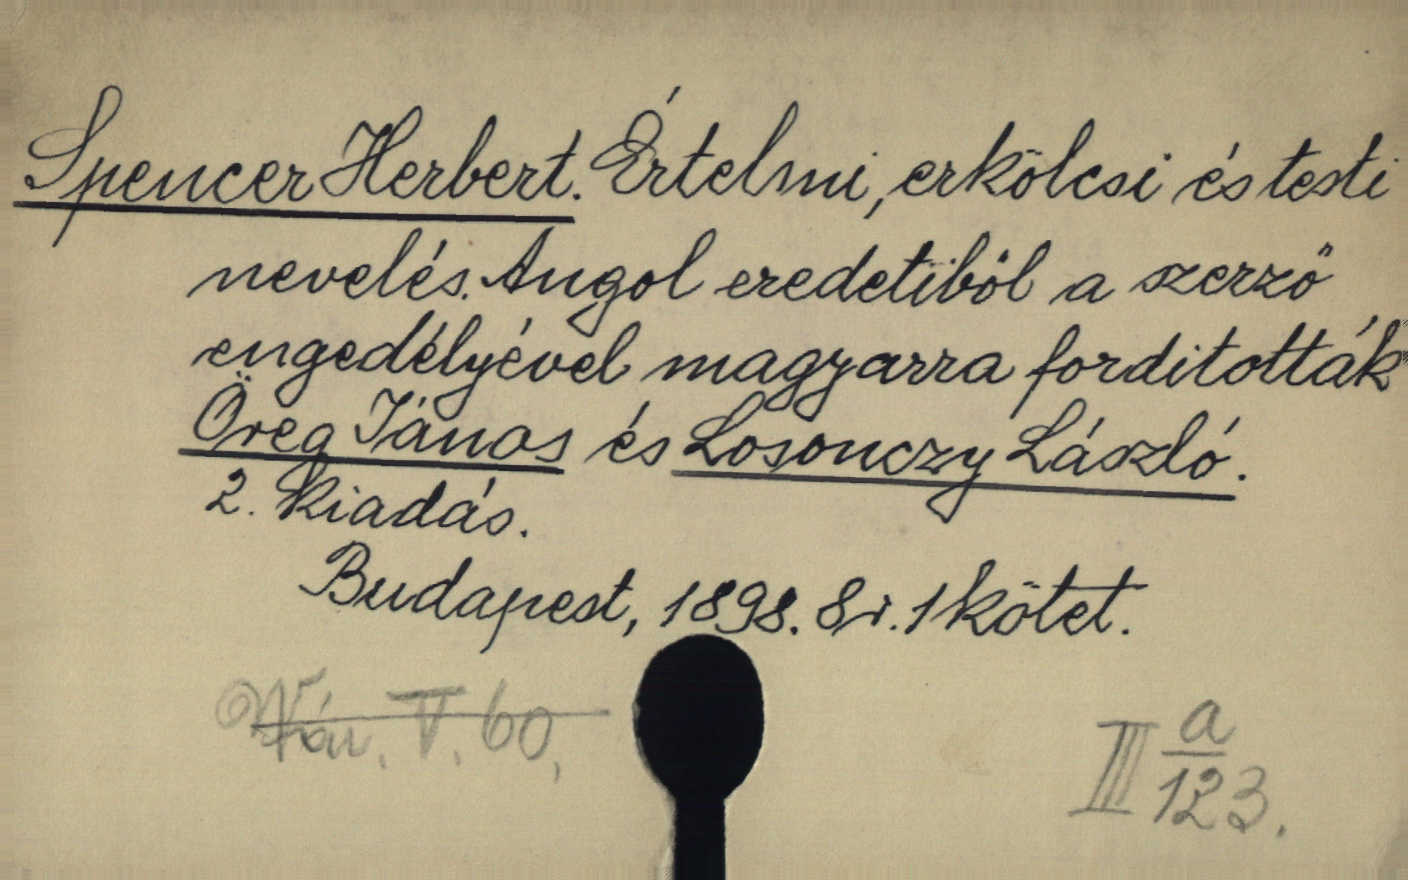 Spencer Herbert. Értelmi, erkölcsi és testi
nevelés. Angol eredetiből a szerző
engedélyével magyarra forditották
Öreg János és Losonczy László.
2. kiadás.
Budapest, 1898. 8r. 1 kötet.
V. 60.
III a/123.